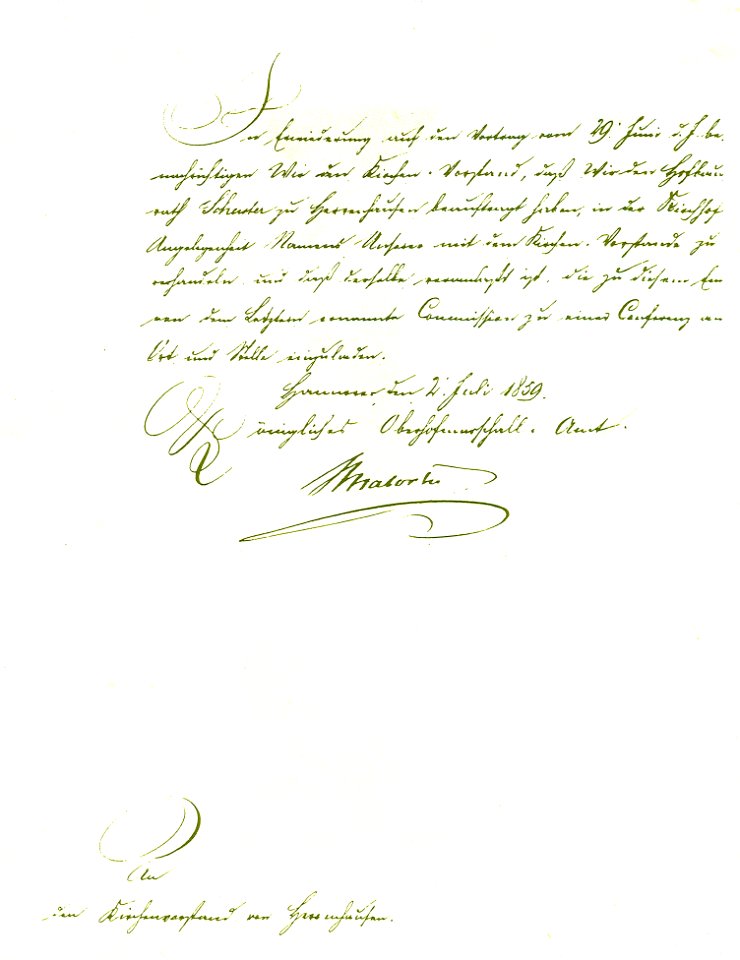 In Erwiederung auf den Vortrag vom 29. Juni d. J. be-
nachrichtigen Wir den Kirchen-Vorstand, daß Wir den Hofbau
rath Schuster zu Herrenhausen beauftragt haben, in der Kirchhof
Angelegenheit Namens Unserer mit dem Kirchen-Vorstande zu
verhandeln und daß derselbe veranlaßt ist, die zu diesem
von dem Letztern ernannte Commission zu einer Conferenz an
Ort und Stelle einzuladen.
Hannover, den 2. Juli 1859.
Königliches Oberhofmarschall-Amt.
Malortie
An
den Kirchenvorstand von Herrnhausen.